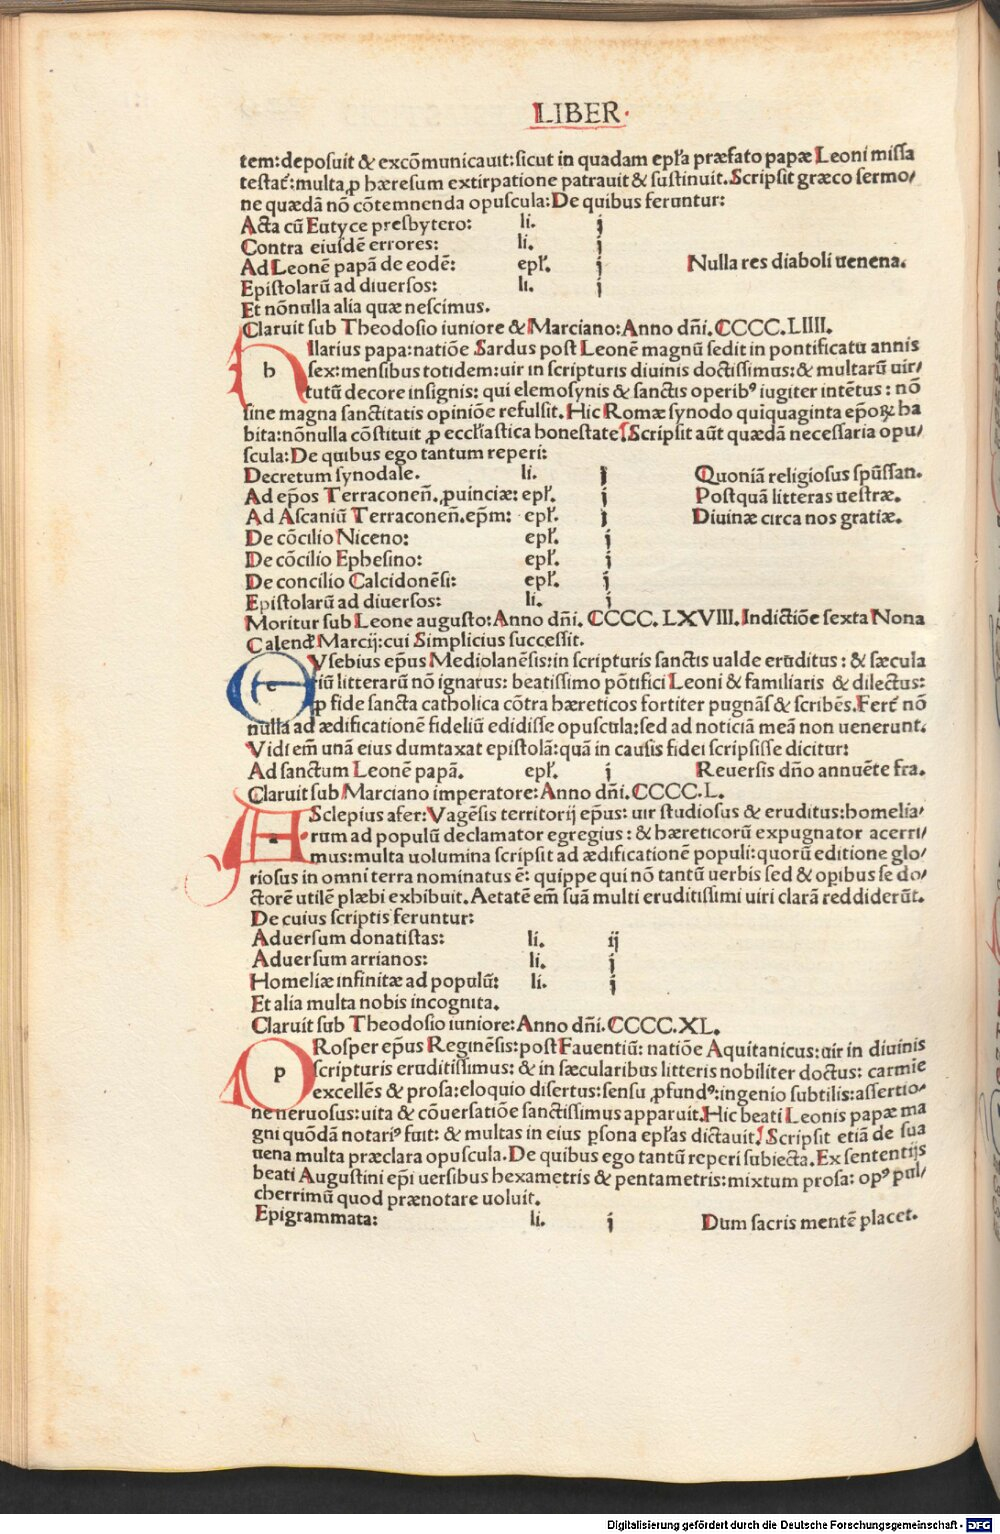 LIBER·
tem:deposuit & excōmunicauit:sicut in quadam epl̄a præfato papæ Leoni missa
testat̄:multa ꝓ hæresum extirpatione patrauit & sustinuit. Scripsit græco sermo/
ne quædā nō cōtemnenda opuscula:De quibus feruntur:
Acta cū Eutyce presbytero: li. j
Contra eiusdē errores: li. j
Ad Leonē papā de eodē: epl̄. j Nulla res diaboli uenena.
Epistolarū ad diuersos: li. j
Et nōnulla alia quæ nescimus.
Claruit sub Theodosio iuniore & Marciano:Anno dn̄i.CCCC.LIIII.
h Ilarius papa:natiōe Sardus post Leonē magnū sedit in pontificatu annis
sex:mensibus totidem:uir in scripturis diuinis doctissimus:& multarū uir/
tutū decore insignis: qui elemosynis & sanctis operibꝰ iugiter intētus: nō
sine magna sanctitatis opiniōe refulsit. Hic Romæ synodo quiquaginta ep̄oꝝ ha
bita:nōnulla cōstituit ꝓ eccl̄iastica honestate. Scripsit aūt quædā necessaria opu/
scula:De quibus ego tantum reperi:
Decretum synodale. li. j Quoniā religiosus sp̄ussan.
Ad ep̄os Terraconen̄.ꝓuinciæ: epl̄. j Postquā litteras uestræ.
Ad Ascaniū Terraconen̄.ep̄m: epl̄. j Diuinæ circa nos gratiæ.
De cōcilio Niceno: epl̄. j
De cōcilio Ephesino: epl̄. j
De concilio Calcidonēsi: epl̄. j
Epistolarū ad diuersos: li. j
Moritur sub Leone augusto:Anno dn̄i. CCCC. LXVIII. Indictiōe sexta Nona
Calend̄. Marcij:cui Simplicius successit.
e Vsebius ep̄us Mediolanēsis:in scripturis sanctis ualde eruditus: & sæcula
riū litterarū nō ignarus: beatissimo pōtifici Leoni & familiaris & dilectus:
ꝓ fide sancta catholica cōtra hæreticos fortiter pugnās & scribēs. Fert̄ nō
nulla ad ædificationē fideliū edidisse opuscula:sed ad noticiā meā non uenerunt.
Vidi em̄ unā eius dumtaxat epistolā:quā in causis fidei scripsisse dicitur:
Ad sanctum Leonē papā. epl̄. j Reuersis dn̄o annuēte fra.
Claruit sub Marciano imperatore:Anno dn̄i.CCCC.L.
a Sclepius afer:Vagēsis territorij ep̄us: uir studiosus & eruditus:homelia/
rum ad populū declamator egregius: & hæreticorū expugnator acerri/
mus:multa uolumina scripsit ad ædificationē populi:quorū editione glo/
riosus in omni terra nominatus ē: quippe qui nō tantū uerbis sed & opibus se do/
ctorē utilē plæbi exhibuit. Aetatē em̄ suā multi eruditissimi uiri clarā reddiderūt.
De cuius scriptis feruntur:
Aduersum donatistas: li. ij
Aduersum arrianos: li. j
Homeliæ infinitæ ad populū: li. j
Et alia multa nobis incognita.
Claruit sub Theodosio iuniore:Anno dn̄i.CCCC.XL.
p Rosper ep̄us Reginēsis:post Fauentiū: natiōe Aquitanicus:uir in diuinis
scripturis eruditissimus: & in sæcularibus litteris nobiliter doctus: carmie
excellēs & prosa:eloquio disertus:sensu ꝓfundꝰ:ingenio subtilis:assertio/
ne neruosus:uita & cōuersatiōe sanctissimus apparuit. Hic beati Leonis papæ ma
gni quōdā notariꝰ fuit: & multas in eius ꝑsona epl̄as dictauit. Scripsit etiā de sua
uena multa præclara opuscula. De quibus ego tantū reperi subiecta. Ex sententijs
beati Augustini ep̄i uersibus hexametris & pentametris:mixtum prosa: opꝰ pul/
cherrimū quod prænotare uoluit.
Epigrammata: li. j Dum sacris mentē placet.
Digitalisierung gefördert durch die Deutsche Forschungsgemeinschaft - DFG